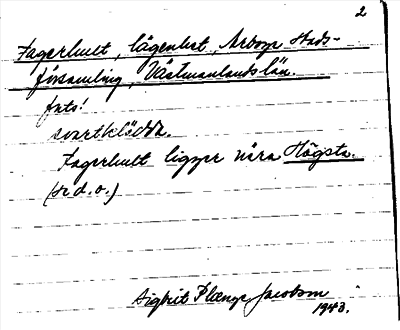 2
Fagerhult, lägenhet, Arboga Stads-
församling, Västmanlands län.
fnts!
svartklädda.
Fagerhult ligger nära Högsta.
(se d.o.)
Sigbrit Plænge Jacobson
1943.